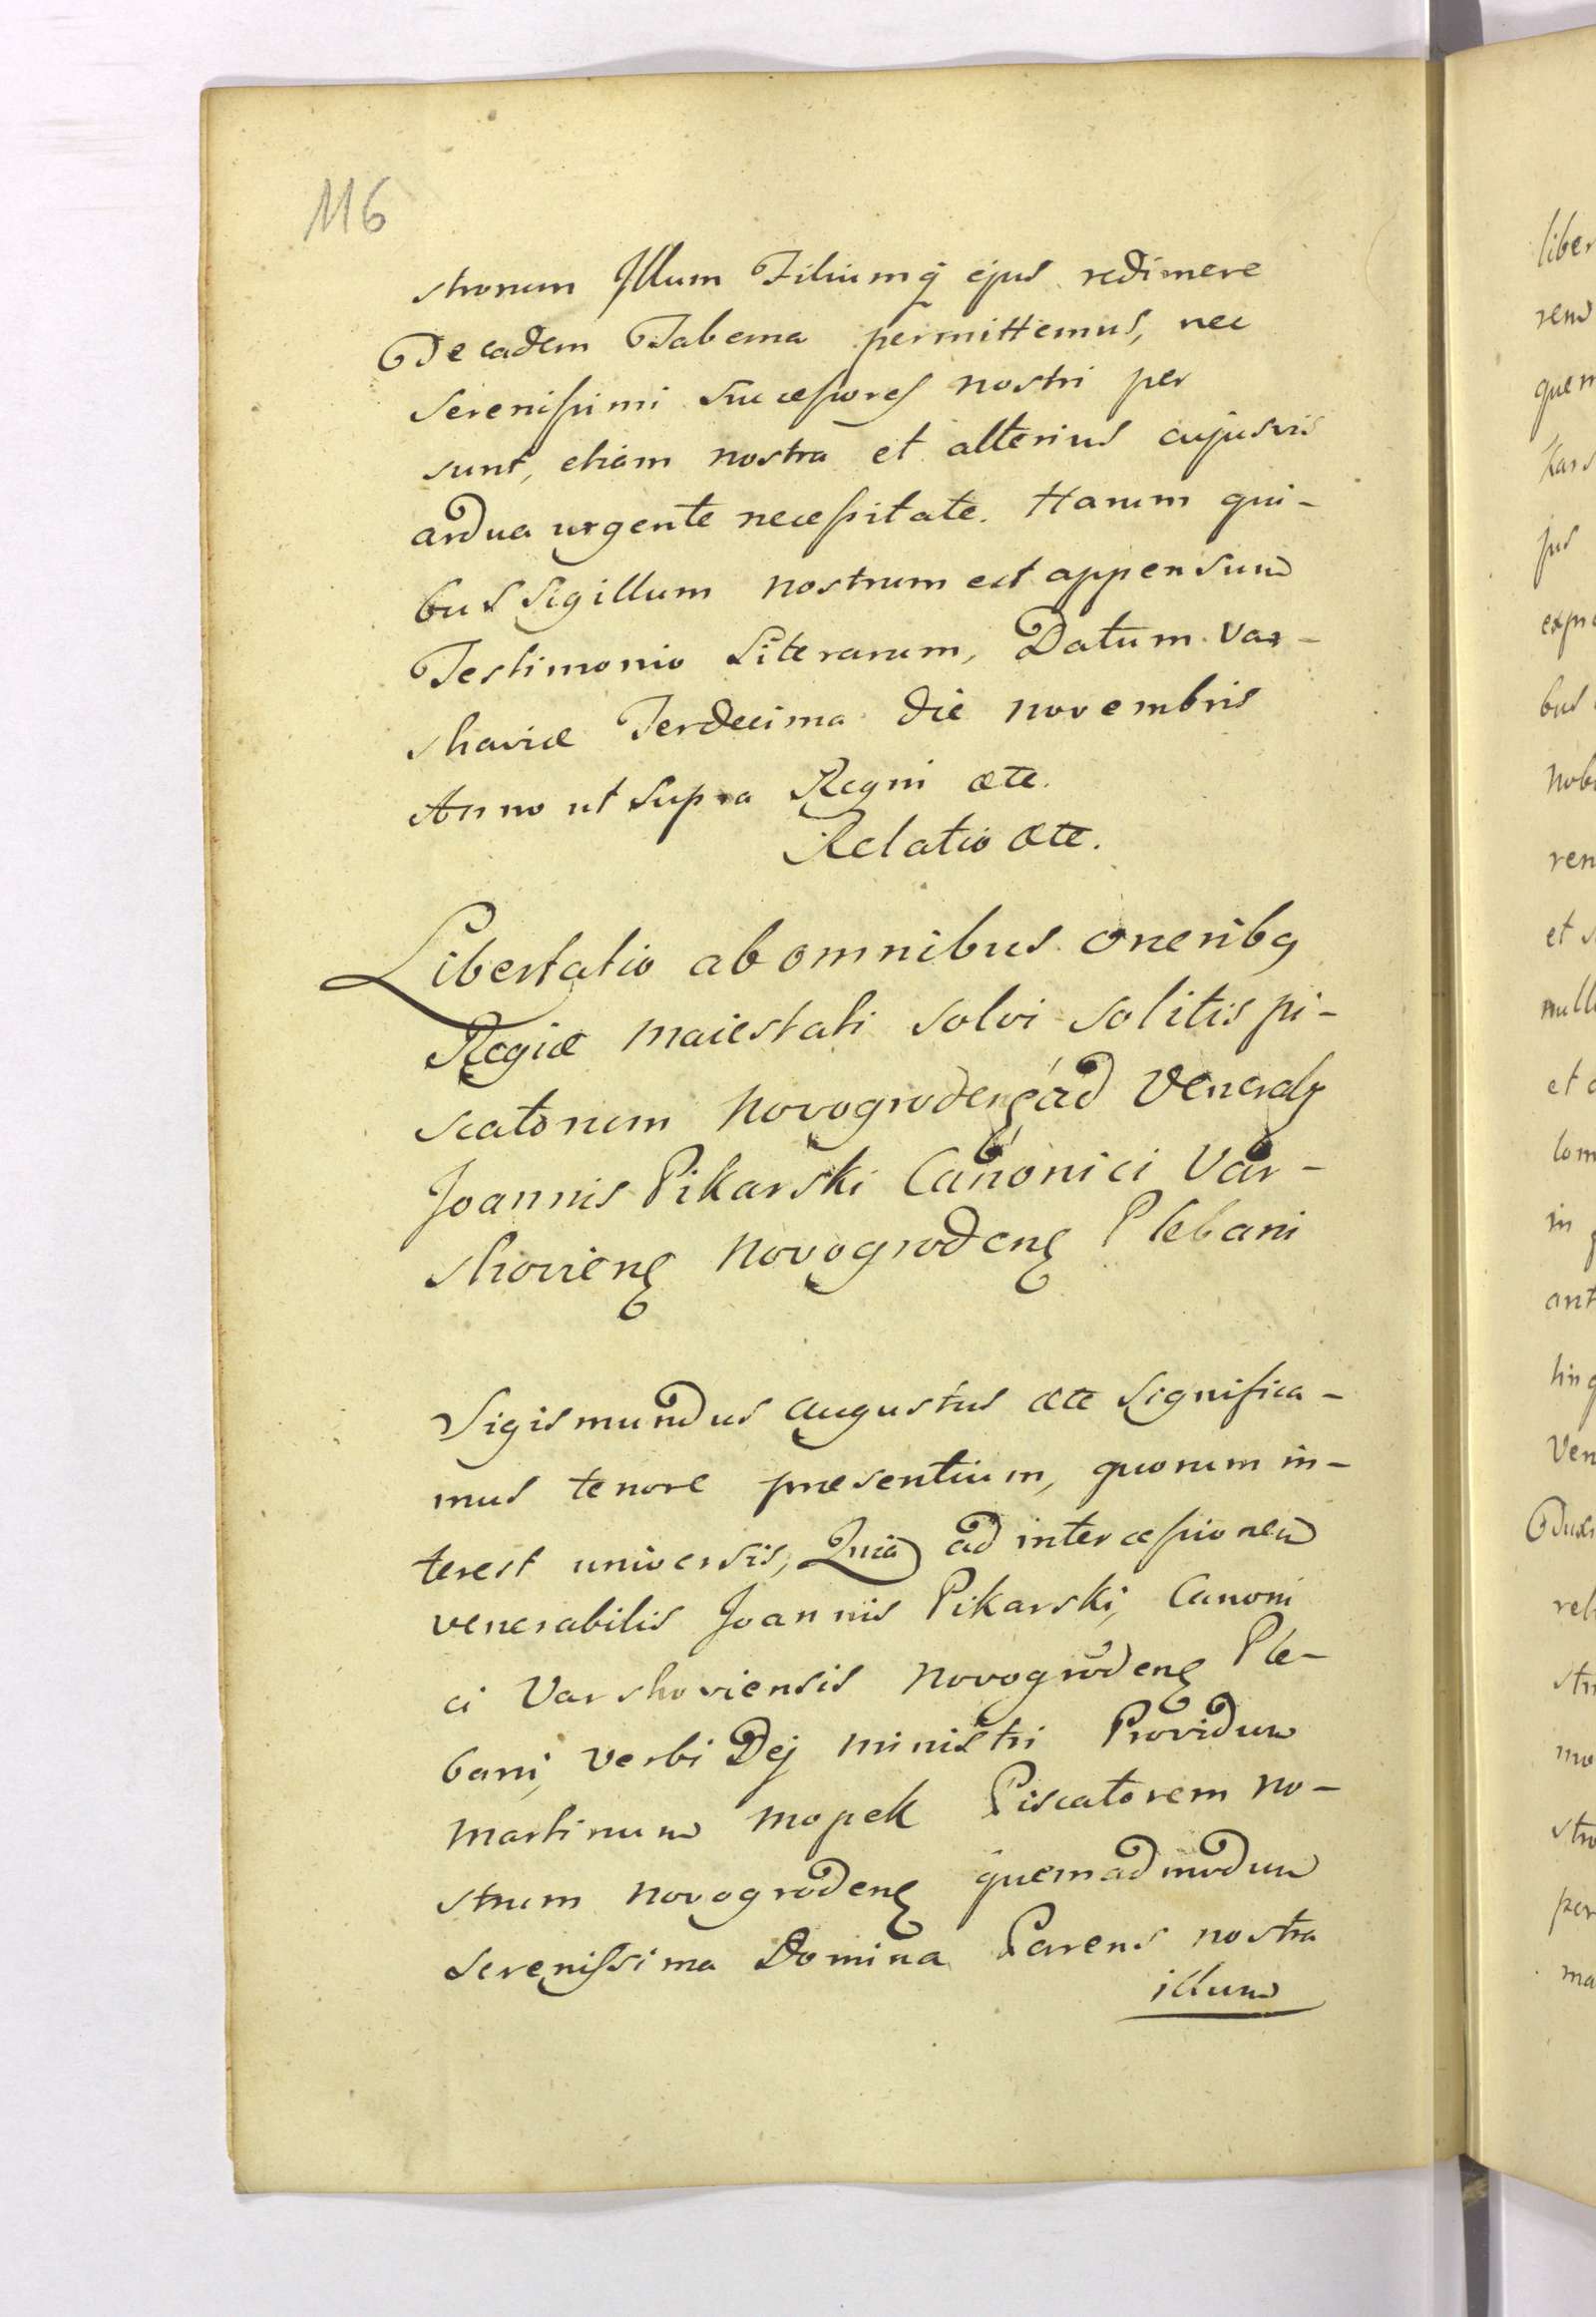 116
strorum Illum Filiumq ejus redimere
De eadem Taberna permittemus, nec
serenissimi successores nostri per
sunt, etiam nostra et alterius cujusvis
ardua urgente necessitate. Harum qui-
bus Sigillum nostrum est appensum
Testimonio Literarum, Datum Var-
shaviæ Terdecima die novembris
Anno ut supra Regni ætc.
Relatio ætc.
Libertatio ab omnibus oneribq
Regiæ maiestati solvi solitis pi-
scatorum novogrodenę ad Venerab
Joannis Pikarski Canonici Var-
shovienę novogrodenę Plebani
Sigismundus Augustus ætc Significa-
mus tenore præsentium, quorum in-
terest universis, Quia ad intercessionem
venerabilis Joannis Pikarski, Canoni
ci Varshoviensis novogrodenę Ple-
bani, verbi Dej ministri Providum
Martinum Mopek Piscatorem no-
strum novogrodenę quemadmodum
Serenissima Domina Parens nostra
illum